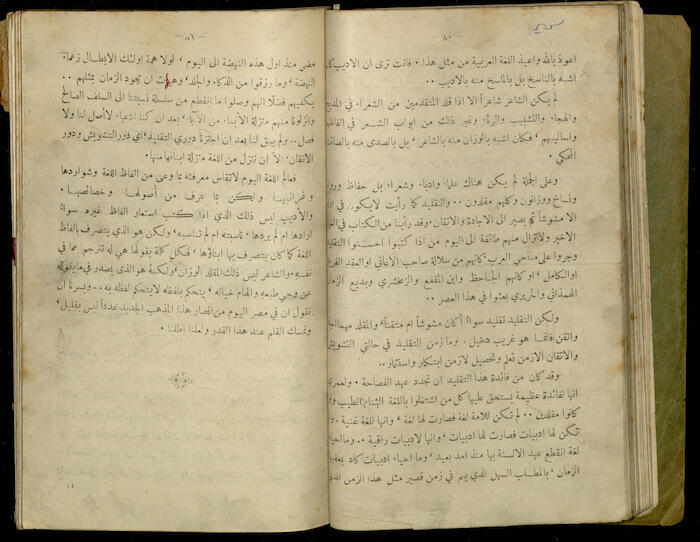 — ٨٠ —
اعوذ بالله واعيذ اللغة العربية من مثل هذا . فانت ترى ان الاديب كان
اشبه بالناسخ بل بالماسخ منه بالاديب ..
لم يكن الشاعر شاعراً الا اذا قلد المتقدمين من الشعراء في المديح
والهجاء والتشبيب والرثاء وغير ذلك من ابواب الشعر في الفاظهم
واساليبهم ، فكان اشبه بالوزان منه بالشاعر ، بل بالصدى منه بالصائت
المحكي .
وعلى الجملة لم يكن هناك علماء وادباء وشعراء بل حفاظ ورواة
ونساخ ووزانون وكلهم مقلدون .. والتقليد كما رأيت لايكون في اوله
الا مشوشاً ثم يصير الى الاجادة والاتقان . وقد رأينا من الكتاب في العهد
الاخير ولاتزال منهم طائفة الى اليوم من اذا كتبوا احسنوا التقليد
وجروا على مناحي العرب كانهم من سلالة صاحب الاغاني او العقد الفريد
او الكامل ، او كانهم الجاحظ وابن المقفع والزمخشري وبديع الزمان
الهمذاني والحريري بعثوا في هذا العصر ..
ولكن التقليد تقليد سواء أكان مشوشاً ام متقناً ، والمقلد مهما اجاد
واتقن فانما هو غريب دخيل . وما زمن التقليد في حالتي التشويش
والاتقان الا زمن تعلم وتحصيل لا زمن ابتكار واستثمار ..
وقد كان من فائدة هذا التقليد ان تجدد عهد الفصاحة . ولعمري
انها لفائدة عظيمة يستحق عليها كل من اشتغلوا باللغة الثناء الطيب وان
كانوا مقلدين .. لم تكن للامة لغة فصارت لها لغة ، وانها للغة غنية . ولم
تكن لها ادبيات فصارت لها ادبيات ، وانها لادبيات راقية .. وما احياء
لغة انقطع عهد الالسنة بها منذ امد بعيد ، وما احياء ادبيات كاد يعفيها
الزمان ، بالمطلب السهل الذي يتم في زمن قصير مثل هذا الزمن الذي
— ٨١ —
مضى منذ اول هذه النهضة الى اليوم ، لولا همة اولئك الابطال زعماء
النهضة ، وما رزقوا من الذكاء والجلد ، وهيهات ان يجود الزمان بمثلهم ..
يكفيهم فضلاً انهم وصلوا ما انقطع من سلسلة نسبتنا الى السلف الصالح
وانزلونا منهم منزلة الابناء من الآباء ، بعد ان كنا ادعياء لا أصل لنا ولا
فصل .. ولم يبق لنا بعد ان اجتزنا دوري التقليد ، اي دور التشويش ودور
الاتقان ، الا ان ننزل من اللغة منزلة ابنائها منها .
فعالم اللغة اليوم لاتقاس معرفته بما وعى من الفاظ اللغة وشواردها
وغرائبها ولكن بما عرف من أصولها وخصائصها .
والاديب ليس ذلك الذي اذا كتب استعار الفاظ غيره سواء
ارادها ام لم يردها ، ناسبته ام لم تناسبه ، ولكن هو الذي يتصرف بالفاظ
اللغة كما كان يتصرف بها ابناؤها ، فكل كلمة يقولها هي له تترجم عما في
نفسه . والشاعر ليس ذلك المقلد الوزان ، ولكنه هو الذي يصدر في مايقوله
عن وحي طبعه والهام خياله ، يتحكم بلفظه لايتحكم لفظه به .. ويسرنا ان
نقول ان في مصر اليوم من انصار هذا المذهب الجديد عدداً ليس بقليل ،
ونمسك القلم عند هذا القدر ولعلنا اطلنا .
١١